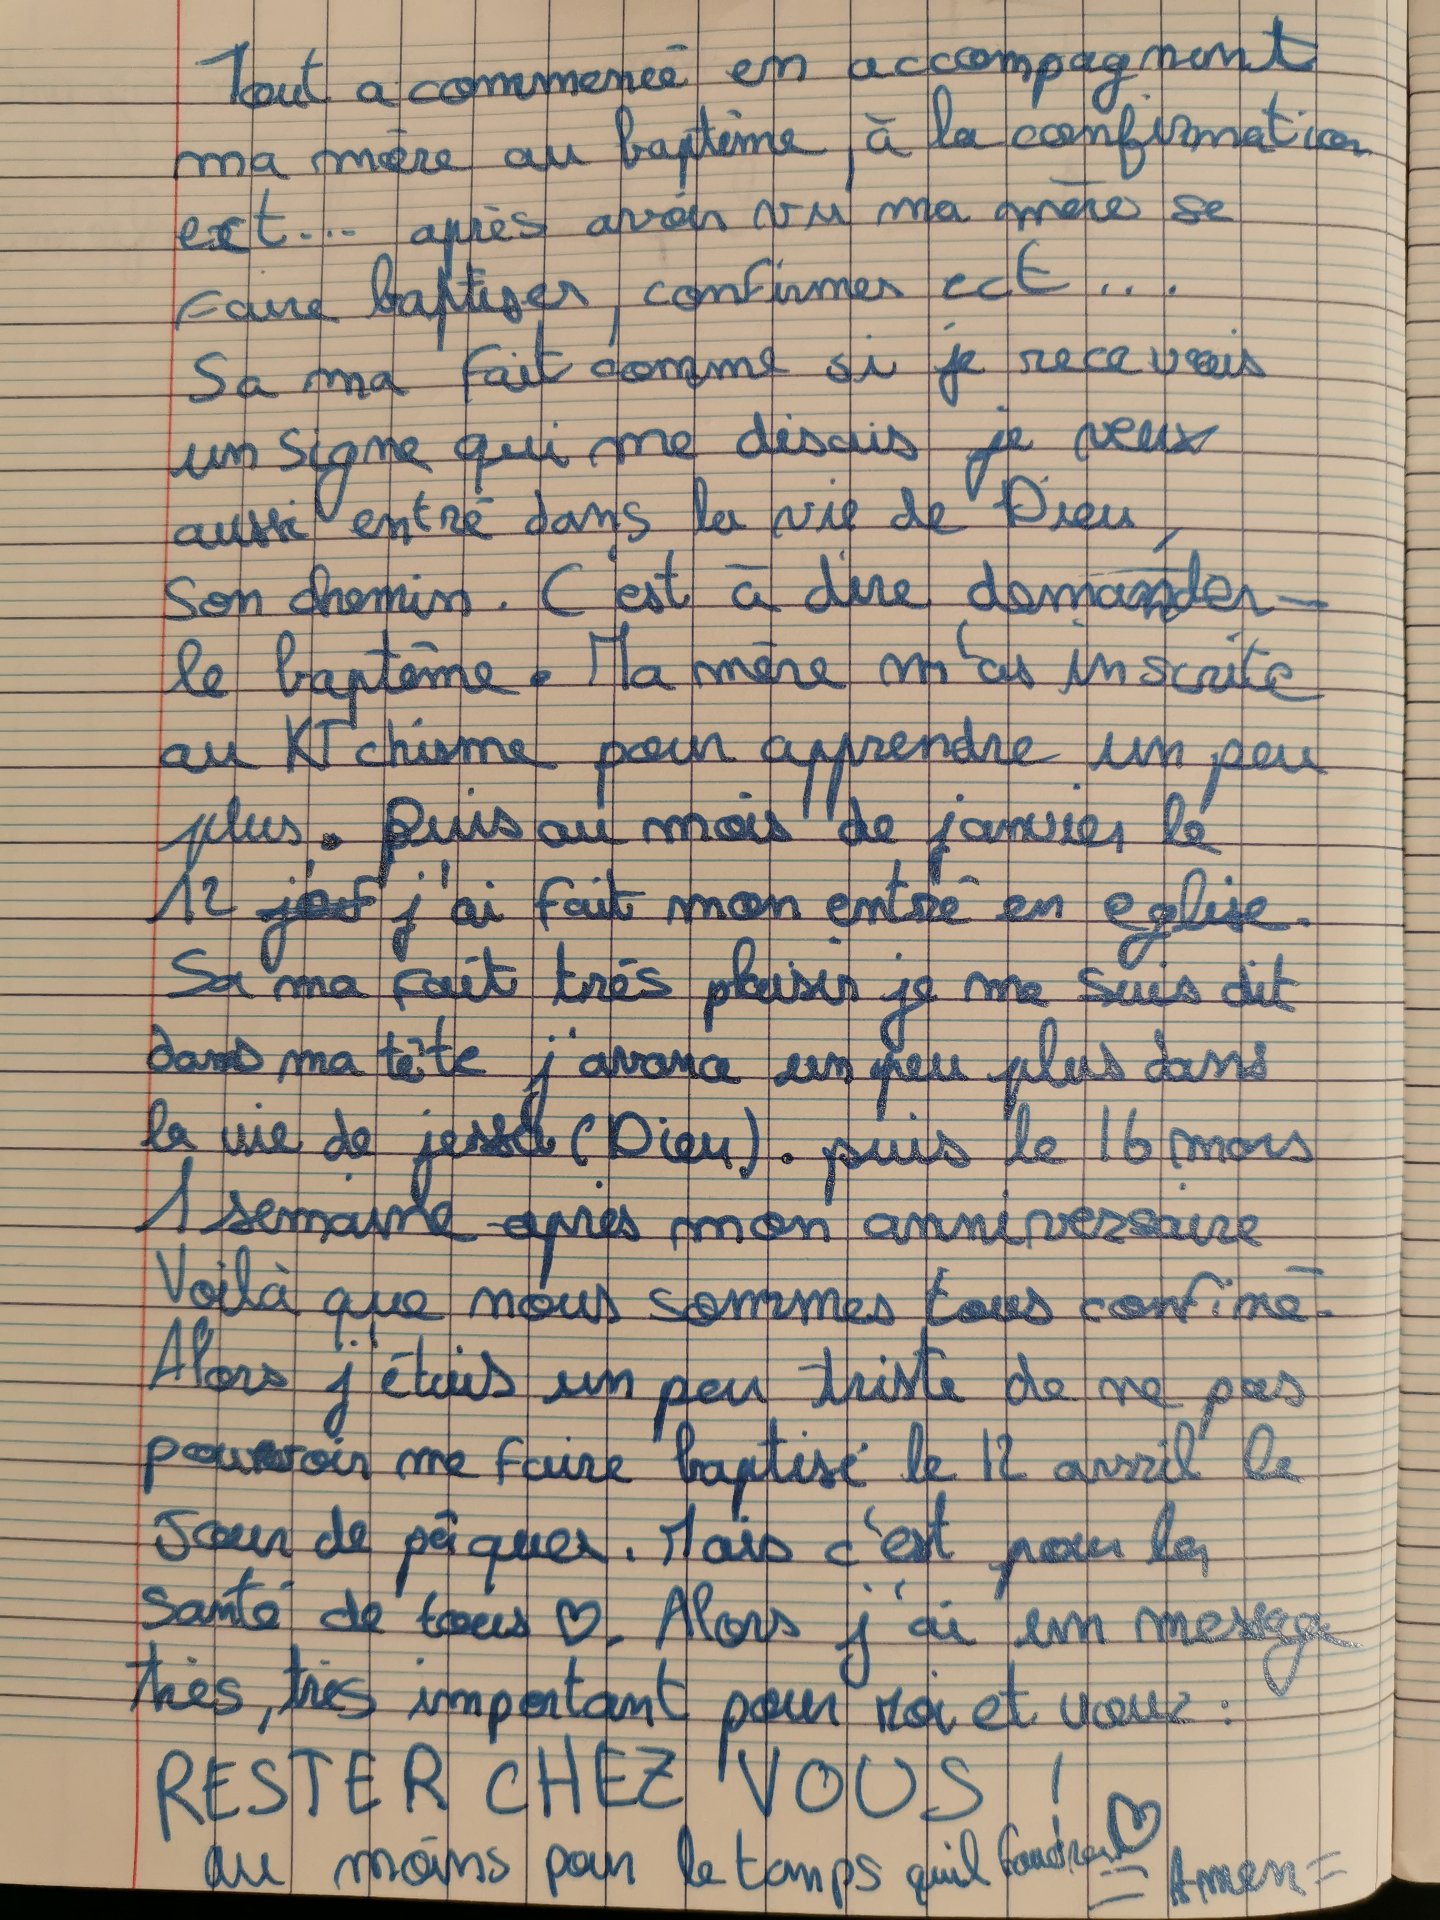 Tout a commencé en accompagnant
ma mère au baptême, à la confirmation
ect... après avoir vu ma mère se
Faire baptiser, confirmer ect...
Sa ma fait comme si je recevais
un signe qui me disais je veux
aussi entré dans la vie de Dieu,
Son chemin. C'est à dire demander
le baptême. Ma mère m'as inscrite
au KTchisme pour apprendre un peu
plus. Puis au mois de janvier le
12 j'ai fait mon entré en eglise.
Sa ma fait très plaisir je me suis dit
dans ma tête j'avance un peu plus dans
la vie de jesus (Dieu). puis le 16 mars
1 semaine après mon anniversaire
Voilà que nous sommes tous confiné.
Alors j'étais un peu triste de ne pas
pouvoir me faire baptisé le 12 avril le
Jour de pâques. Mais c'est pour la
santé de tous ♡. Alors j'ai un message
très, très important pour moi et vous :
RESTER CHEZ VOUS !
au moins pour le temps qu'il faudra ♡
= Amen =